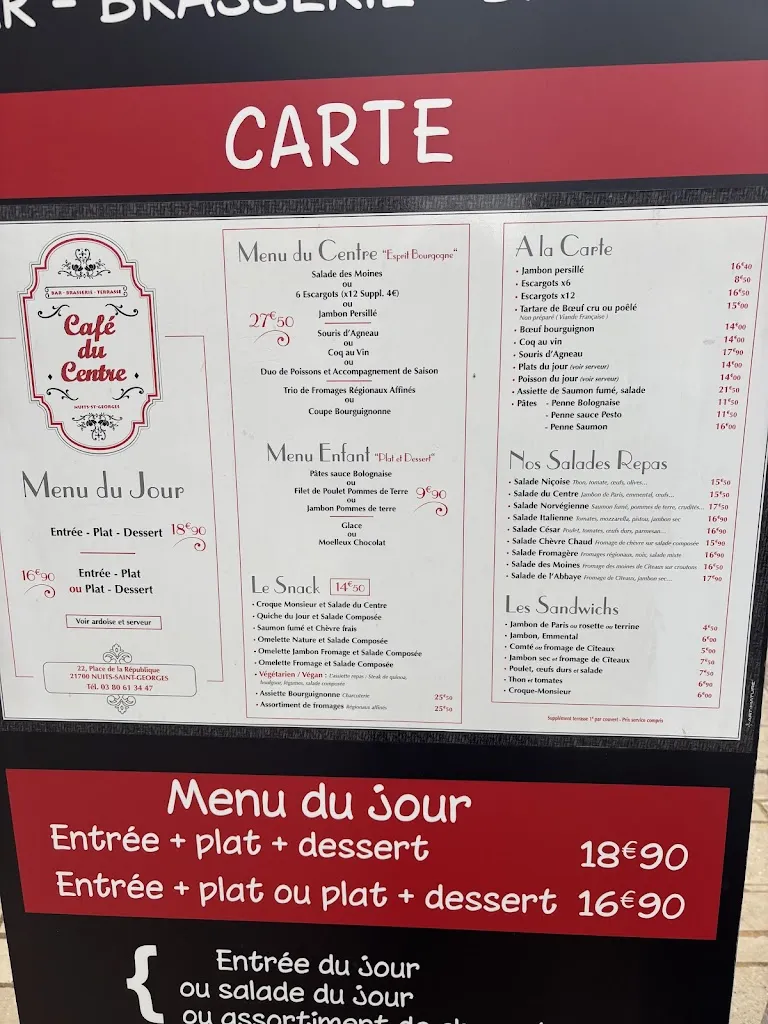 - BRASSERIE -
CARTE
BAR - BRASSERIE - TERRASSE
Café
du
Centre
NUITS-ST-GEORGES
Menu du Jour
Entrée - Plat - Dessert 18€90
16€90 Entrée - Plat
ou Plat - Dessert
Voir ardoise et serveur
22, Place de la République
21700 NUITS-SAINT-GEORGES
Tél. 03 80 61 34 47
Menu du Centre "Esprit Bourgogne"
Salade des Moines
ou
6 Escargots (x12 Suppl. 4€)
ou
Jambon Persillé
27€50
Souris d'Agneau
ou
Coq au Vin
ou
Duo de Poissons et Accompagnement de Saison
Trio de Fromages Régionaux Affinés
ou
Coupe Bourguignonne
Menu Enfant "Plat et Dessert"
Pâtes sauce Bolognaise
ou
Filet de Poulet Pommes de Terre 9€90
ou
Jambon Pommes de terre
Glace
ou
Moelleux Chocolat
Le Snack 14€50
• Croque Monsieur et Salade du Centre
• Quiche du Jour et Salade Composée
• Saumon fumé et Chèvre frais
• Omelette Nature et Salade Composée
• Omelette Jambon Fromage et Salade Composée
• Omelette Fromage et Salade Composée
• Végétarien / Végan : L'assiette repas : Steak de quinoa,
boulgour, légumes, salade composée
• Assiette Bourguignonne Charcuterie 25€50
• Assortiment de fromages Régionaux affinés 25€50
A la Carte
• Jambon persillé 16€40
• Escargots x6 8€50
• Escargots x12 16€50
• Tartare de Bœuf cru ou poêlé 15€00
Non préparé (Viande Française)
• Bœuf bourguignon 14€00
• Coq au vin 14€00
• Souris d'Agneau 17€90
• Plats du jour (voir serveur) 14€00
• Poisson du jour (voir serveur) 14€00
• Assiette de Saumon fumé, salade 21€50
• Pâtes - Penne Bolognaise 11€50
- Penne sauce Pesto 11€50
- Penne Saumon 16€00
Nos Salades Repas
• Salade Niçoise Thon, tomate, œufs, olives... 15€50
• Salade du Centre Jambon de Paris, emmental, œufs... 15€50
• Salade Norvégienne Saumon fumé, pommes de terre, crudités... 17€50
• Salade Italienne Tomates, mozzarella, pistou, jambon sec 16€90
• Salade César Poulet, tomates, œufs durs, parmesan... 16€90
• Salade Chèvre Chaud Fromage de chèvre sur salade composée 15€90
• Salade Fromagère Fromages régionaux, noix, salade mixte 16€90
• Salade des Moines Fromage des moines de Cîteaux sur croutons 16€50
• Salade de l'Abbaye Fromage de Cîteaux, jambon sec... 17€90
Les Sandwichs
• Jambon de Paris ou rosette ou terrine 4€50
• Jambon, Emmental 6€00
• Comté ou fromage de Cîteaux 5€00
• Jambon sec et fromage de Cîteaux 7€50
• Poulet, œufs durs et salade 7€50
• Thon et tomates 6€90
• Croque-Monsieur 6€00
Supplément terrasse 1€ par couvert - Prix service compris
Menu du jour
Entrée + plat + dessert 18€90
Entrée + plat ou plat + dessert 16€90
{ Entrée du jour
ou salade du jour
ou assortiment de